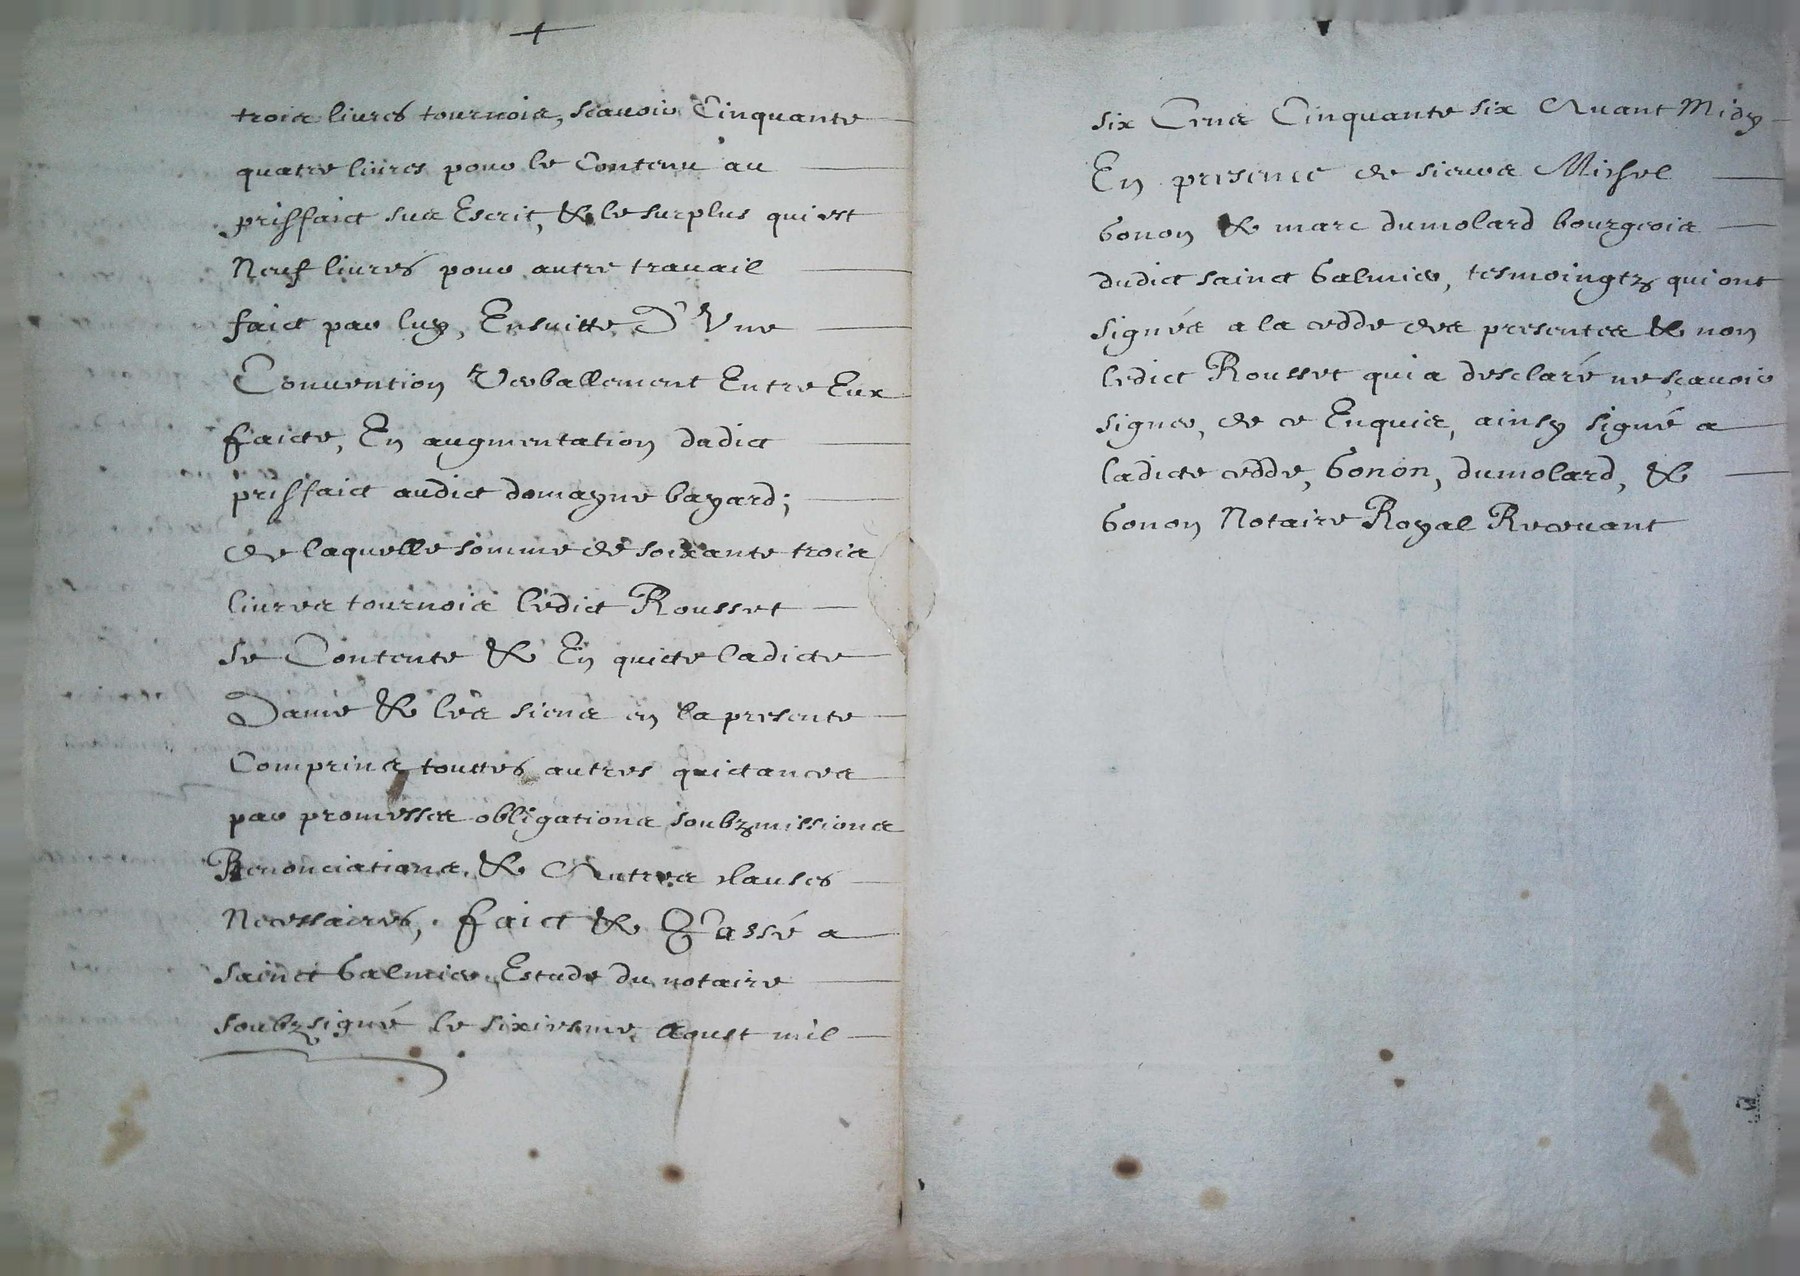 trois liures tournois, scauoir Cinquante
quatre liures pour le Contenu au
prisfaict sus Escrit, & le surplus qui est
Neuf liures pour autre trauail
faict par luy, Ensuitte D'Vne
Conuention Verballement Entre Eux
faicte, En augmentation dudict
prisfaict audict domayne bayard;
de laquelle somme de soixante trois
liures tournois ledict Rousset
se Contente & En quicte ladicte
Dame & les siens en la presente
Comprins touttes autres quictances
par promesses obligations soubzmissions
Renonciations, & Autres clauses
Necessaires, faict & Passé a
sainct Galmier Estude du notaire
soubzsigné le sixiesme Aoust mil
six Cens Cinquante six Auant Midy
En presence de sieurs Michel
bonon & marc dumolard bourgeois
dudict sainct Galmier, tesmoingtz qui ont
signés a la cedde des presentes & non
ledict Rousset qui a desclaré ne scauoir
signer, de ce Enquis, ainsy signé a
ladicte cedde, bonon, dumolard, &
bonon Notaire Royal Receuant